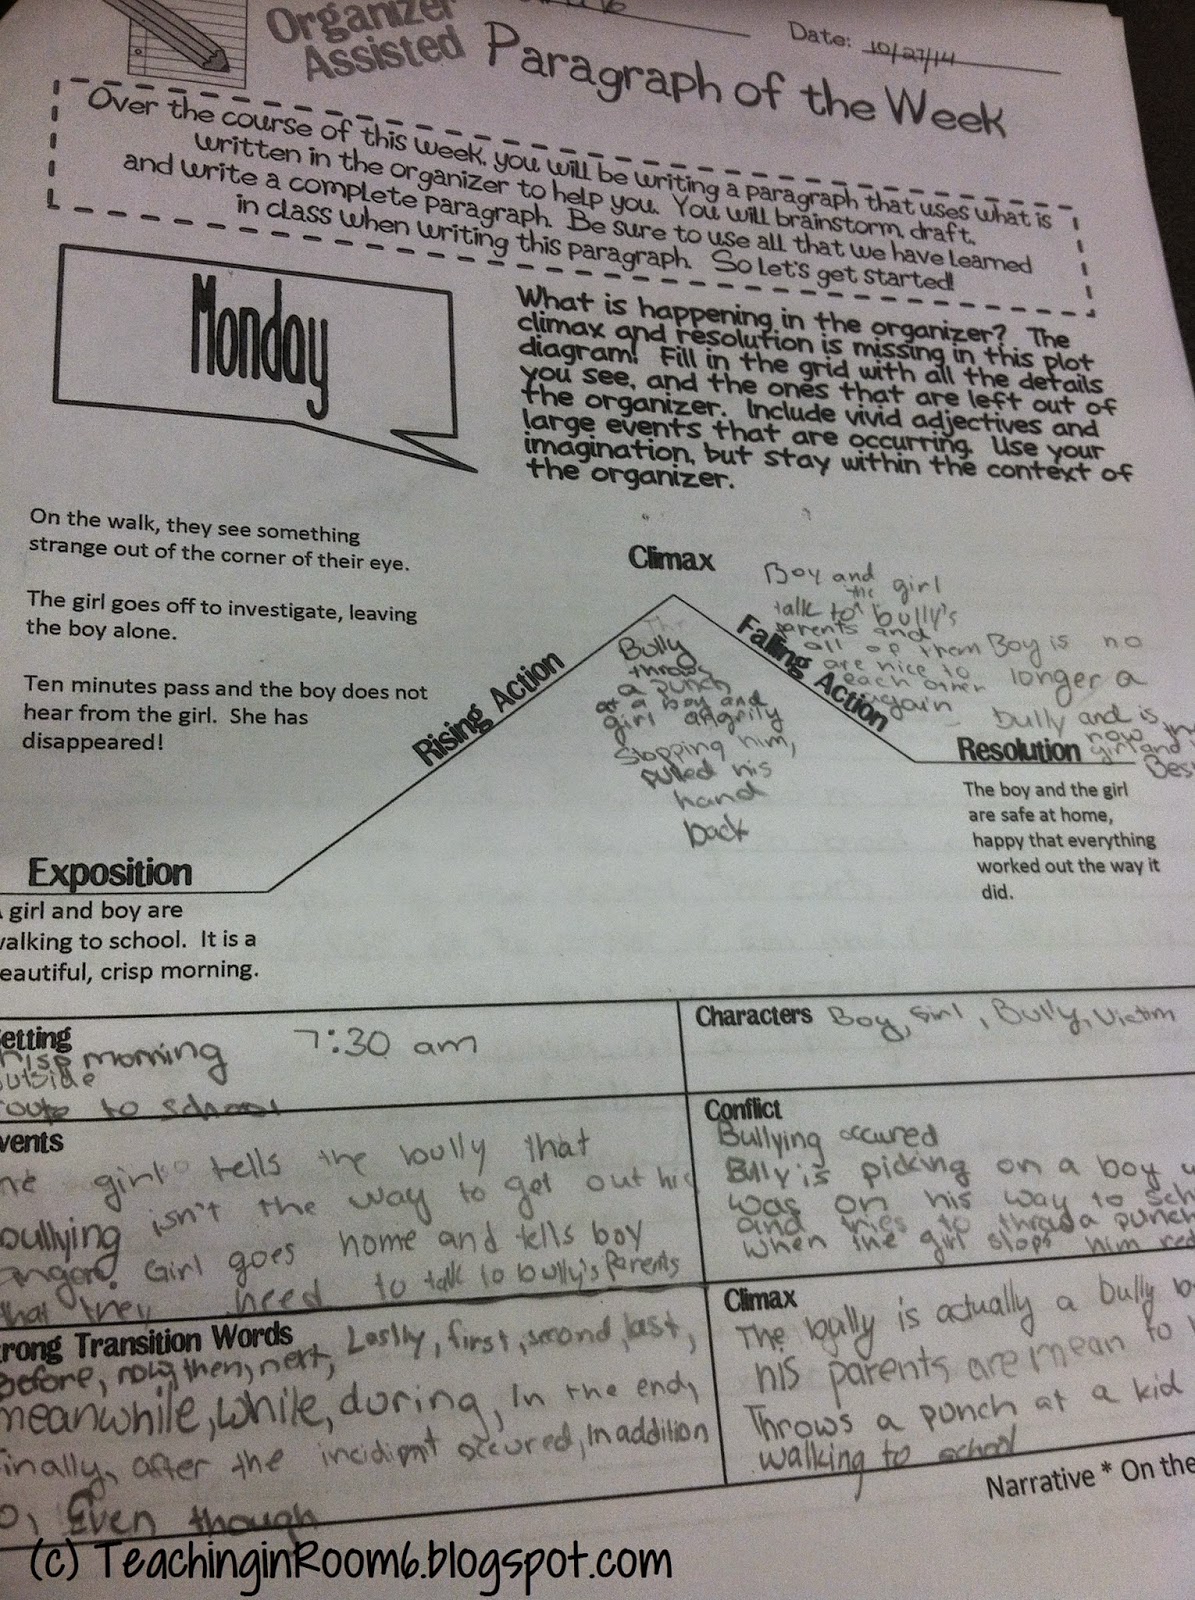 Organizer
Assisted
Paragraph of the Week
Date: 10/27/14
Over the course of this week, you will be writing a paragraph that uses what is
written in the organizer to help you. You will brainstorm, draft,
and write a complete paragraph. Be sure to use all that we have learned
in class when writing this paragraph. So let's get started!
Monday
What is happening in the organizer? The
climax and resolution is missing in this plot
diagram! Fill in the grid with all the details
you see, and the ones that are left out of
the organizer. Include vivid adjectives and
large events that are occurring. Use your
imagination, but stay within the context of
the organizer.
On the walk, they see something
strange out of the corner of their eye.
The girl goes off to investigate, leaving
the boy alone.
Ten minutes pass and the boy does not
hear from the girl. She has
disappeared!
Rising Action
Climax
Bully
throws
a punch
at a boy and
girl angrily
stopping him,
pulled his
hand
back
Falling Action
Boy and girl
talk to the bully's
parents and
all of them
are nice to
each other
again
Boy is no
longer a
bully and is
now
girl and
Resolution
The boy and the girl
are safe at home,
happy that everything
worked out the way it
did.
Exposition
girl and boy are
walking to school. It is a
beautiful, crisp morning.
Setting
crisp morning 7:30 am
outside
route to school
Characters Boy, Girl, Bully, Victim
Events
The girl tells the bully that
bullying isn't the way to get out his
anger. Girl goes home and tells boy
that they need to talk to bully's parents
Conflict
Bullying occured
Bully is picking on a boy
was on his way to
and tries to throw a punch
when the girl stops him
Strong Transition Words Lastly, first, second, last,
before, now, then, next,
meanwhile, while, during, In the end,
finally, after the incidient occured, In addition
Even though
Climax
The bully is actually a bully
his parents are mean to
Throws a punch at a kid
walking to school
Narrative * On the
(c) TeachinginRoom6.blogspot.com